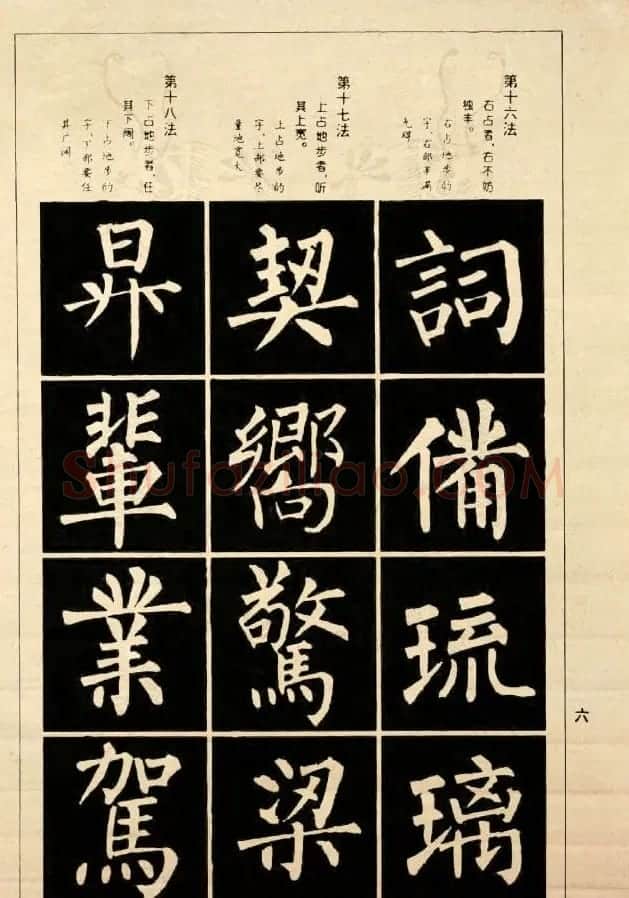 第十六法
右占者，右不妨
独丰。
右占地步的
字，右部丰满
无碍
詞備琉璃
第十七法
上占地步者，听
其上宽。
上占地步的
字，上部要尽
量地宽大
契嚮驚梁
第十八法
下占地步者，任
其下阔。
下占地步的
字，下部要任
其广阔
昇輩業駕
六
Shufaziliao.COM